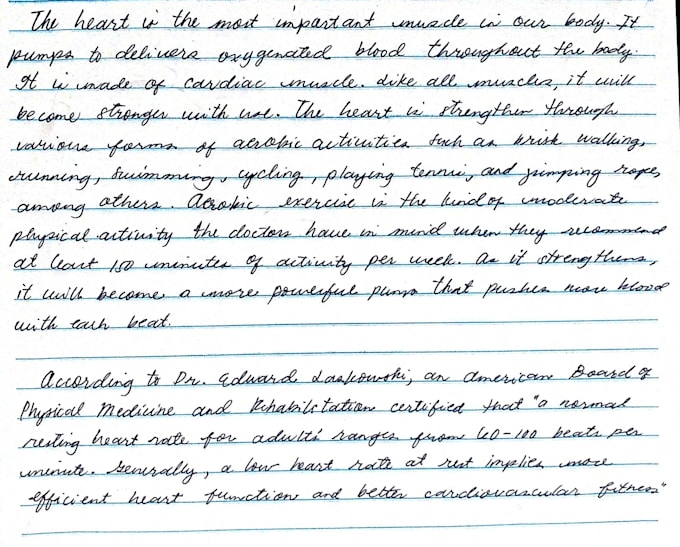 The heart is the most important muscle in our body. It
pumps to delivers oxygenated blood throughout the body.
It is made of cardiac muscle. Like all muscles, it will
become stronger with use. The heart is strengthen through
various forms of aerobic activities such as brisk walking,
running, swimming, cycling, playing tennis, and jumping ropes,
among others. Aerobic exercise is the kind of moderate
physical activity the doctors have in mind when they recommend
at least 150 minutes of activity per week. As it strengthens,
it will become a more powerful pump that pushes more blood
with each beat.
According to Dr. Edward Laskowski, an American Board of
Physical Medicine and Rehabilitation certified that "a normal
resting heart rate for adults' ranges from 60-100 beats per
minute. Generally, a low heart rate at rest implies more
efficient heart function and better cardiovascular fitness"